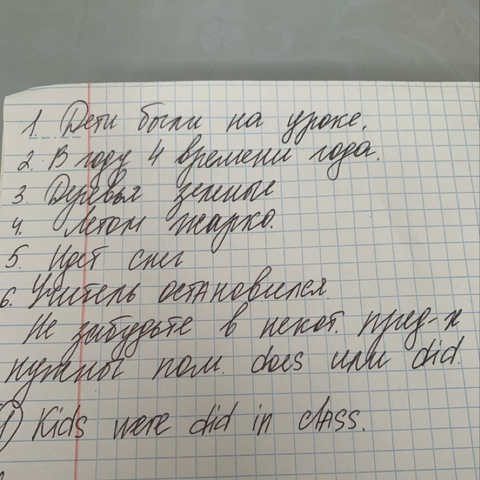 1. Дети были на уроке.
2. В году 4 времени года.
3 Деревья зеленые
4. Летом жарко.
5. Идет снег
6. Учитель остановился.
Не забудьте в некот. пред-х
нужны пом. does или did.
1) Kids were did in class.